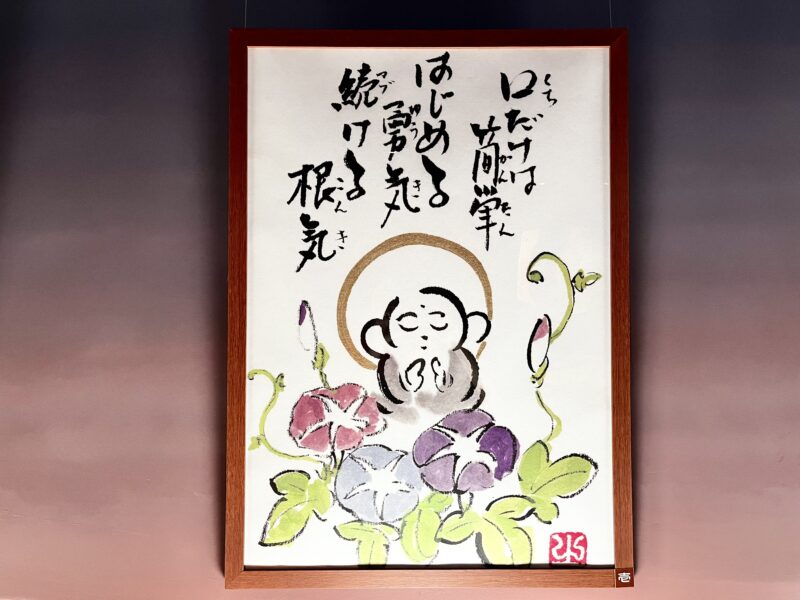 くち
口だけは
かんたん
簡単
はじめる
ゆうき
勇気
つづ
続ける
こんき
根気
壱